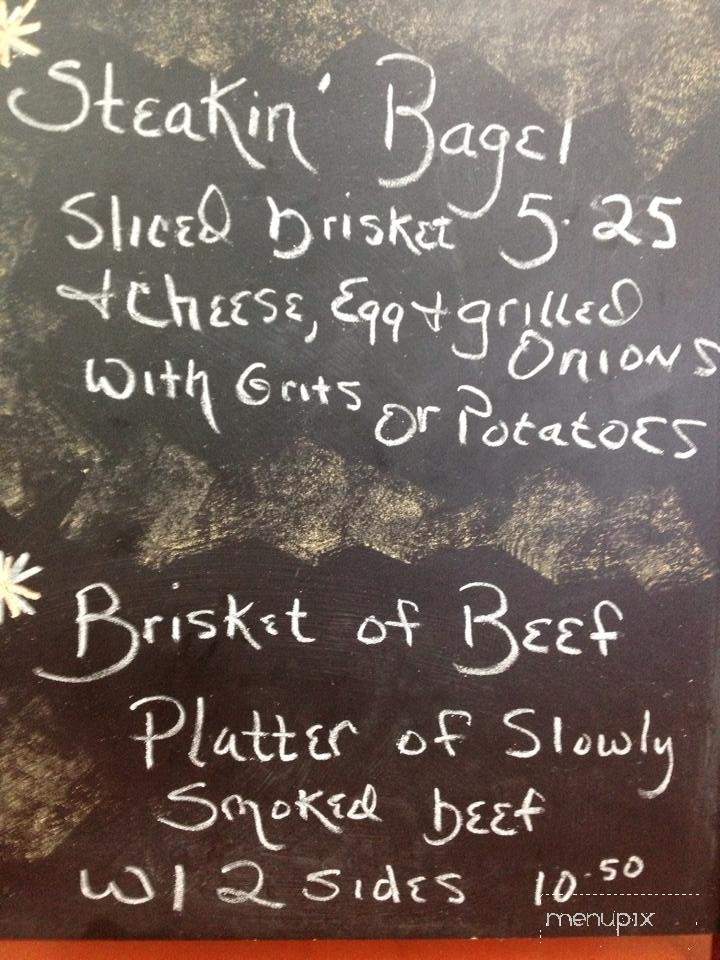 Steakin' Bagel
Sliced brisket 5.25
+ Cheese, Egg + grilled
Onions
With Grits or Potatoes
Brisket of Beef
Platter of Slowly
Smoked beef
W/ 2 sides 10.50
menupix